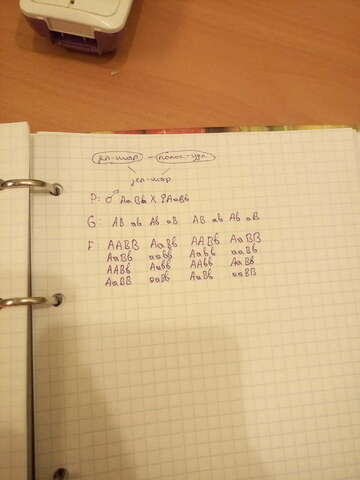 зел-шар - полос-удл.
зел-шар
P: ♂ AaBb X ♀AaBb
G: AB ab Ab aB AB ab Ab aB
F: AABB AaBb AABb AaBB
AaBb aabb Aabb aaBb
AABb Aabb AAbb AaBb
AaBB aaBb AaBb aaBB